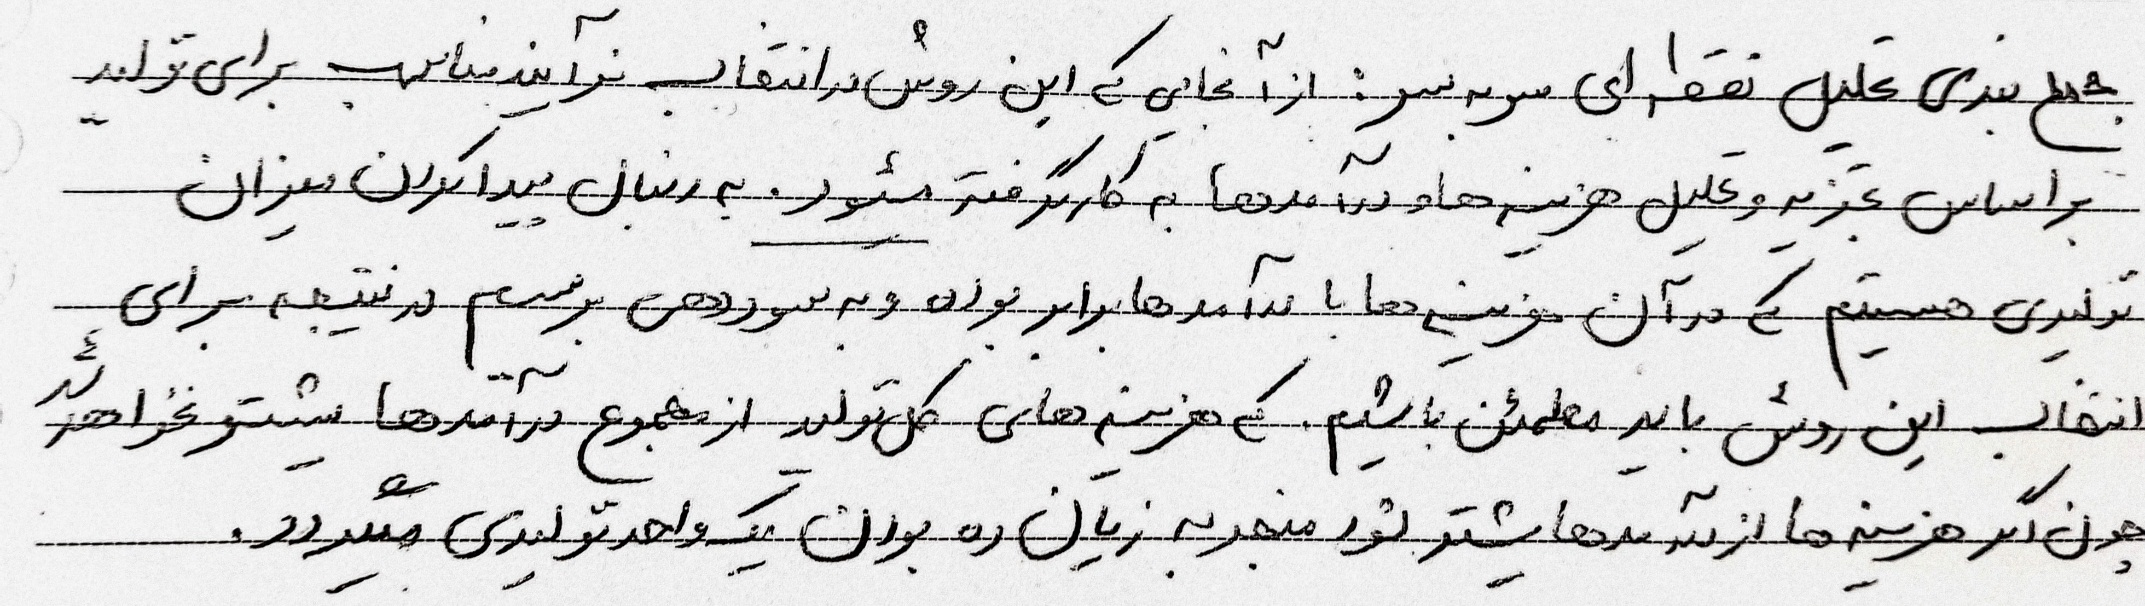 جمع بندی تحلیل نقطه ای سر به سر : از آنجایی که این روش در انتخاب فرآیند مناسب برای تولید
بر اساس تجزیه و تحلیل هزینه ها و درآمدها به کار گرفته میشود. به دنبال پیدا کردن میزان
تولیدی هستیم که در آن هزینه ها با درآمدها برابر بوده و به سوددهی برسیم در نتیجه برای
انتخاب این روش باید مطمئن باشیم. که هزینه های کل تولید از مجموع درآمدها بیشتر نخواهد شد
چون اگر هزینه ها از درآمدها بیشتر شود منجر به زیان ده بودن یک واحد تولیدی میگردد.